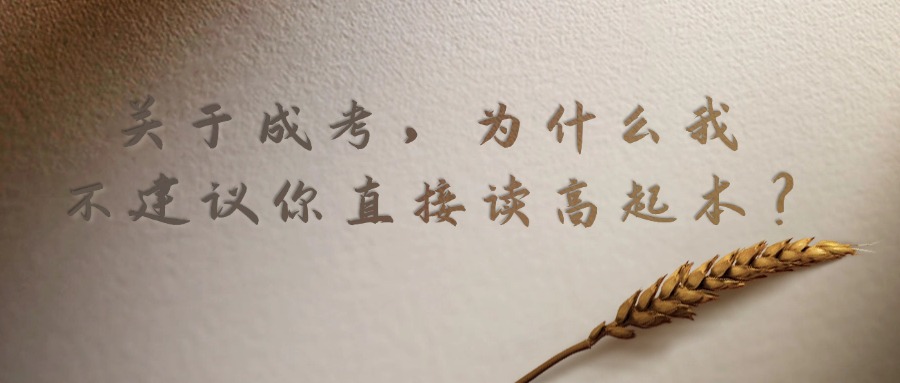 关于成考，为什么我
不建议你直接读高起本？